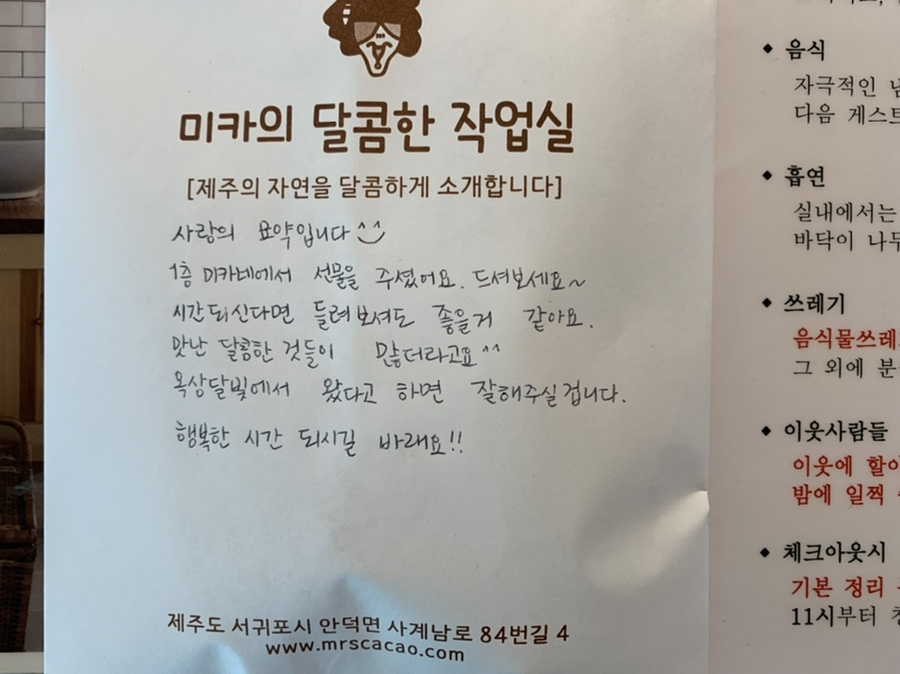 미카의 달콤한 작업실
[제주의 자연을 달콤하게 소개합니다]
사랑의 묘약입니다
1층 미카네에서 선물을 주셨어요. 드셔보세요~
시간되신다면 들려보셔도 좋을거 같아요.
맛난 달콤한 것들이 많더라고요^^
옥상달빛에서 왔다고 하면 잘해주실겁니다.
행복한 시간 되시길 바래요!!
제주도 서귀포시 안덕면 사계남로 84번길 4
www.mrscacao.com
◆ 음식
자극적인
다음 게스트
◆ 흡연
실내에서는
바닥이 나무
◆ 쓰레기
음식물쓰레
그 외에 분
◆ 이웃사람들
이웃에
밤에 일찍
◆ 체크아웃시
기본 정리
11시부터